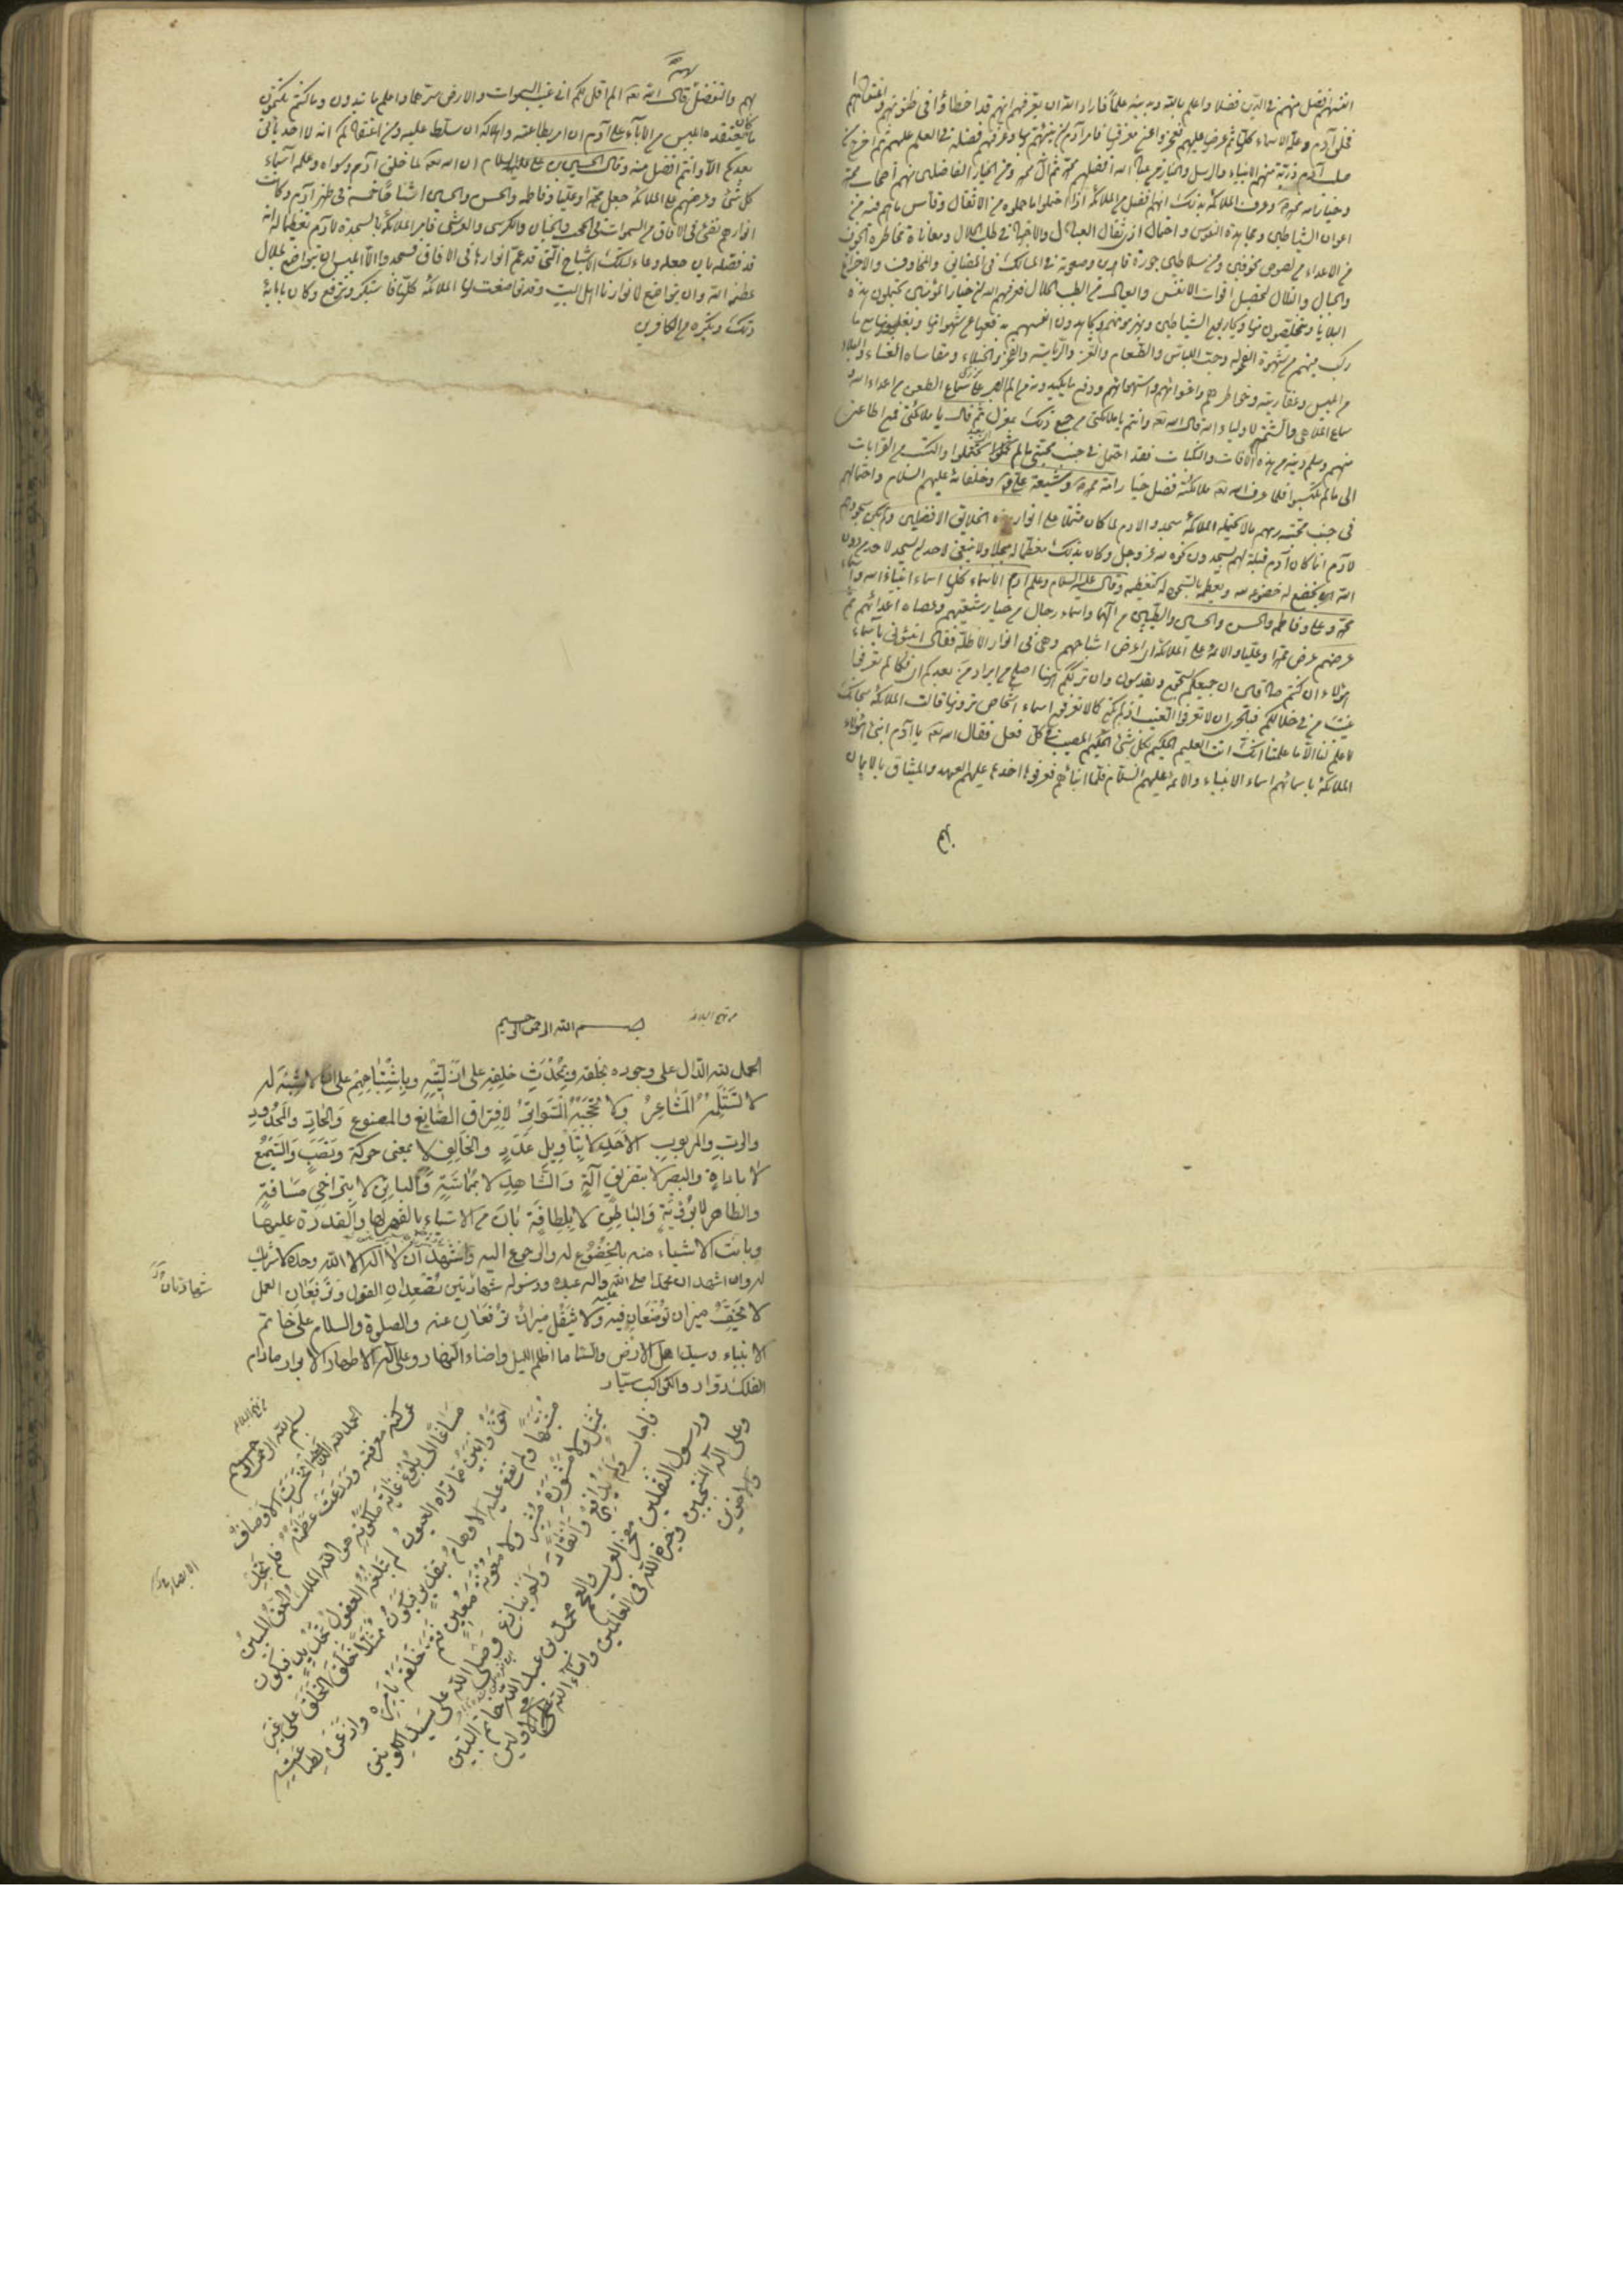 انفسهم افضل منهم في الدين فضلا واعلم بالله وبدينه علما فاراد الله ان يعرفهم انهم قد اخطاؤا في ظنونهم واعتقاداتهم
فخلق آدم وعلمه الاسماء كلها ثم عرضها عليهم فعجزوا عن معرفتها فامر آدم ان ينبئهم بها وعرفهم فضله في العلم عليهم ثم اخرج من
صلب آدم ذريته منهم الانبياء والرسل والخيار من عباد الله افضلهم محمد ثم آل محمد ومن الخيار الفاضلين منهم اصحاب محمد
وخيار امة محمد وعرف الملائكة بذلك انهم افضل من الملائكة اذا احتملوا ما حملوه من الاثقال وقاسوا ما هم فيه من
اعوان الشياطين ومجاهدة النفوس واحتمال اذى ثقل العيال والاجتهاد في طلب الحلال ومعاناة مخاطرة الخوف
من الاعداء من لصوص مخوفين ومن سلاطين جورة قاهرين وصعوبة في المسالك في المضايق والمخاوف والاجزاع
والجبال والتلال لتحصيل اقوات الانفس والعيال من الطيب الحلال فعرفهم الله ان خيار المؤمنين يحتملون هذه
البلايا ويتخلصون منها ويحاربون الشياطين ويهزمونهم ويجاهدون انفسهم بدفعها عن شهواتها ويغلبونها مع ما
ركب فيهم من شهوة الفحولة وحب اللباس والطعام والعز والرياسة والفخر والخيلاء ومقاساة العناء والبلاء
من ابليس وعفاريته وخواطرهم واغوائهم واستهوائهم ودفع ما يكيدونه من الم الصبر على سماع الطعن من اعداء الله و
سماع الملاهي والشتم لاولياء الله قال الله تعه وانتم يا ملائكتي من جميع ذلك بمعزل ثم قال يا ملائكتي فمن اطاعني
منهم وسلم دينه من هذه الآفات والنكبات فقد احتمل في جنب محبتي ما لم تحتملوا واكتسب من القربات
الى ما لم تكتسبوا فلما عرف الله تعه ملائكته فضل خيار امة محمد وشيعة علي وخلفائه عليهم السلام واحتمالهم
في جنب محبة ربهم ما لا يحتمله الملائكة سجدوا لآدم لما كان مشتملا على انوار هذه الخلائق الافضلين ولم يكن سجودهم
لآدم انما كان آدم قبلة لهم يسجدون نحوه لله عز وجل وكان بذلك معظما له مبجلا ولا ينبغي لاحد ان يسجد لاحد من دون
الله ان يخضع له خضوعه لله ويعظمه بالسجود له كتعظيمه وقال عليه السلام وعلم آدم الاسماء كلها اسماء انبياء الله واسماء
محمد وعلي وفاطمه والحسن والحسين والطيبين من آلهما واسماء رجال من خيار شيعتهم وعصاة اعدائهم ثم
عرضهم عرض محمدا وعليا والائمة على الملائكة اي عرض اشباحهم وهي في انوار الاظلة فقال انبئوني باسماء
هؤلاء ان كنتم صادقين ان جميعكم تسبحون وتقدسون وان ترككم ههنا اصلح من ايراد من بعدكم اي فكما لم تعرفوا
غيب من في خلالكم فبالحري ان لا تعرفوا الغيب اذ لم يكن كما لا تعرفون اسماء اشخاص ترونها قالت الملائكة سبحانك
لا علم لنا الا ما علمتنا انك انت العليم الحكيم بكل شئ الحكيم المصيب في كل فعل فقال الله تعه يا آدم انبئ هؤلاء
الملائكة باسمائهم اسماء الانبياء والائمة عليهم السلام فلما انبأهم فعرفوها اخذ عليهم العهد والميثاق بالايمان
بهم
لهم والتفضيل قال الله تعه الم اقل لكم اني اعلم غيب السموات والارض سرهما واعلم ما تبدون وما كنتم تكتمون
ما كان يعتقده ابليس من الاباء على آدم ان امر بطاعته واهلاكه ان سلط عليه ومن اعتقادكم انه لا احد يأتي
بعدكم الا وانتم افضل منه وقال الحسين بن علي عليه السلام ان الله تعه لما خلق آدم وسواه وعلمه اسماء
كل شئ وعرضهم على الملائكة جعل محمدا وعليا وفاطمه والحسن والحسين اشباحا خمسة في ظهر آدم وكانت
انوارهم تضئ في الآفاق من السموات والحجب والجنان والكرسي والعرش فامر الملائكة بالسجدة لآدم تعظيما له انه
قد فضله بان جعله وعاء لتلك الاشباح التي قد عم انوارها في الآفاق فسجدوا الا ابليس ابى ان يتواضع لجلال
عظمة الله وان يتواضع لانوارنا اهل البيت وقد تواضعت لها الملائكة كلها فاستكبر وترفع وكان بابائه
ذلك وتكبره من الكافرين
من نهج البلاغه
بسم الله الرحمن الرحيم
الحمد لله الدال على وجوده بخلقه وبمحدث خلقه على ازليته وباشتباههم على ان لا شبه له
لا تستلمه المشاعر ولا تحجبه السواتر لافتراق الصانع والمصنوع والحاد والمحدود
والرب والمربوب الاحد لا بتأويل عدد والخالق لا بمعنى حركة ونصب والسميع
لا باداة والبصير لا بتفريق آلة والشاهد لا بمماسة والباين لا بتراخي مسافة
والظاهر لا برؤية والباطن لا بلطافة بان من الاشياء بالقهر لها والقدرة عليها
وبانت الاشياء منه بالخضوع له والرجوع اليه واشهد ان لا اله الا الله وحده لا شريك
له وان اشهد ان محمدا صلى الله عليه واله عبده ورسوله شهادتين تصعدان القول وترفعان العمل
شهادتان
لا يخف ميزان توضعان فيه ولا يثقل ميزان ترفعان عنه والصلوة والسلام على خاتم
الانبياء وسيد اهل الارض والسما ما اظلم الليل واضاء النهار وعلى آله الاطهار الابرار مادام
الفلك دوار والكواكب سيار
من نهج البلاغه
بسم الله الرحمن الرحيم
الحمد لله الذي انحسرت الاوصاف
عن كنه معرفته وردعت عظمته العقول فلم تجد
مساغا الى بلوغ غاية ملكوته هو الله الملك الحق المبين
احق وابين مما تراه العيون لم تبلغه العقول بتحديد فيكون
مشبها ولم تقع عليه الاوهام بتقدير فيكون ممثلا خلق الخلق على غير
تمثيل ولا مشورة مشير ولا معونة معين فتم خلقه بامره واذعن لطاعته
فاجاب ولم يدافع وانقاد ولم ينازع وصلى الله على سيد الكونين
ورسول الثقلين مفخر العرب والعجم محمد بن عبد الله خاتم النبيين
وعلى آله المنتجبين وخيرة الله في العالمين وامناء الله على الاولين
والآخرين